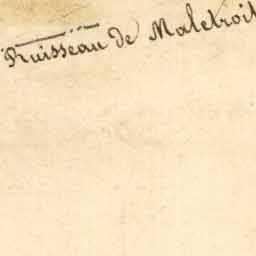 Ruisseau de Maletroit